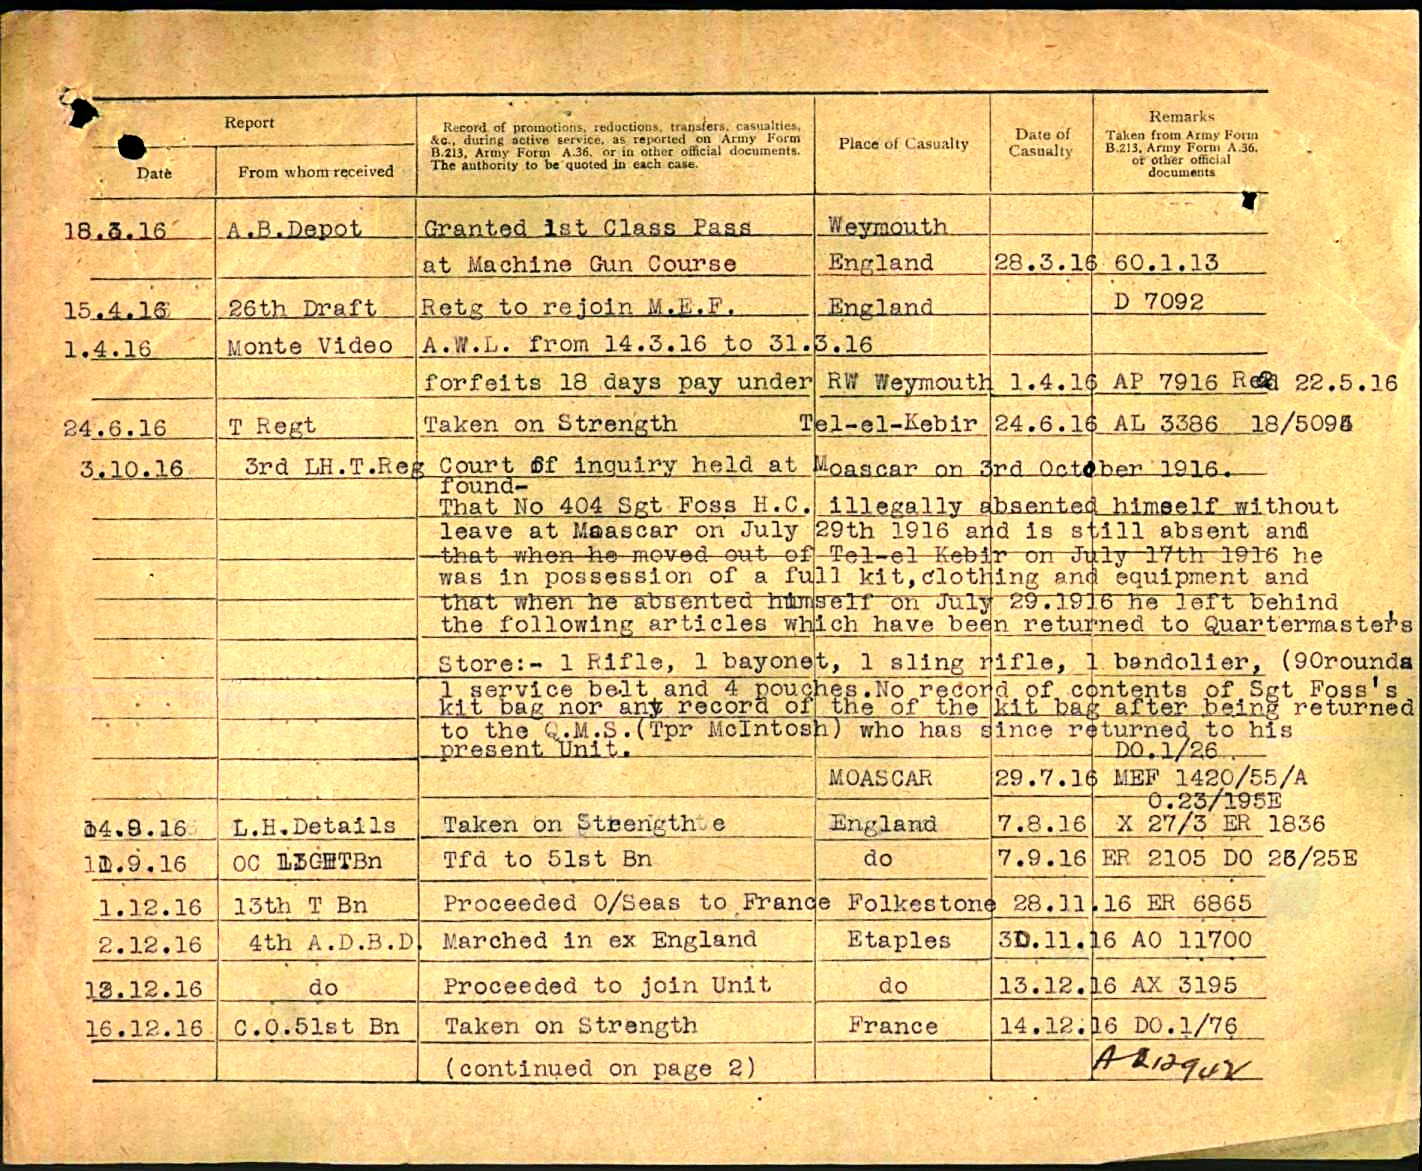 Report
Record of promotions, reductions, transfers, casualties,
&c., during active service, as reported on Army Form
B.213, Army Form A.36, or in other official documents.
The authority to be quoted in each case.
Place of Casualty
Date of
Casualty
Remarks
Taken from Army Form
B.213, Army Form A.36,
or other official
documents
Date
From whom received
18.3.16 A.B.Depot Granted 1st Class Pass Weymouth
at Machine Gun Course England 28.3.16 60.1.13
15.4.16 26th Draft Retg to rejoin M.E.F. England D 7092
1.4.16 Monte Video A.W.L. from 14.3.16 to 31.3.16
forfeits 18 days pay under RW Weymouth 1.4.16 AP 7916 22.5.16
24.6.16 T Regt Taken on Strength Tel-el-Kebir 24.6.16 AL 3386 18/5098
3.10.16 3rd LH.T.Reg Court of inquiry held at Moascar on 3rd October 1916.
found-
That No 404 Sgt Foss H.C. illegally absented himself without
leave at Moascar on July 29th 1916 and is still absent and
that when he moved out of Tel-el Kebir on July 17th 1916 he
was in possession of a full kit,clothing and equipment and
that when he absented himself on July 29.1916 he left behind
the following articles which have been returned to Quartermaster's
Store:- 1 Rifle, 1 bayonet, 1 sling rifle, 1 bandolier, (90rounds
1 service belt and 4 pouches.No record of contents of Sgt Foss's
kit bag nor any record of the of the kit bag after being returned
to the Q.M.S.(Tpr McIntosh) who has since returned to his
present Unit. DO.1/26
MOASCAR 29.7.16 MEF 1420/55/A
0.23/195E
14.8.16 L.H.Details Taken on Strength England 7.8.16 X 27/3 ER 1836
11.9.16 OC Bn Tfd to 51st Bn do 7.9.16 ER 2105 DO 26/25E
1.12.16 13th T Bn Proceeded O/Seas to France Folkestone 28.11.16 ER 6865
2.12.16 4th A.D.B.D. Marched in ex England Etaples 30.11.16 AO 11700
13.12.16 do Proceeded to join Unit do 13.12.16 AX 3195
16.12.16 C.O.51st Bn Taken on Strength France 14.12.16 DO.1/76
(continued on page 2)